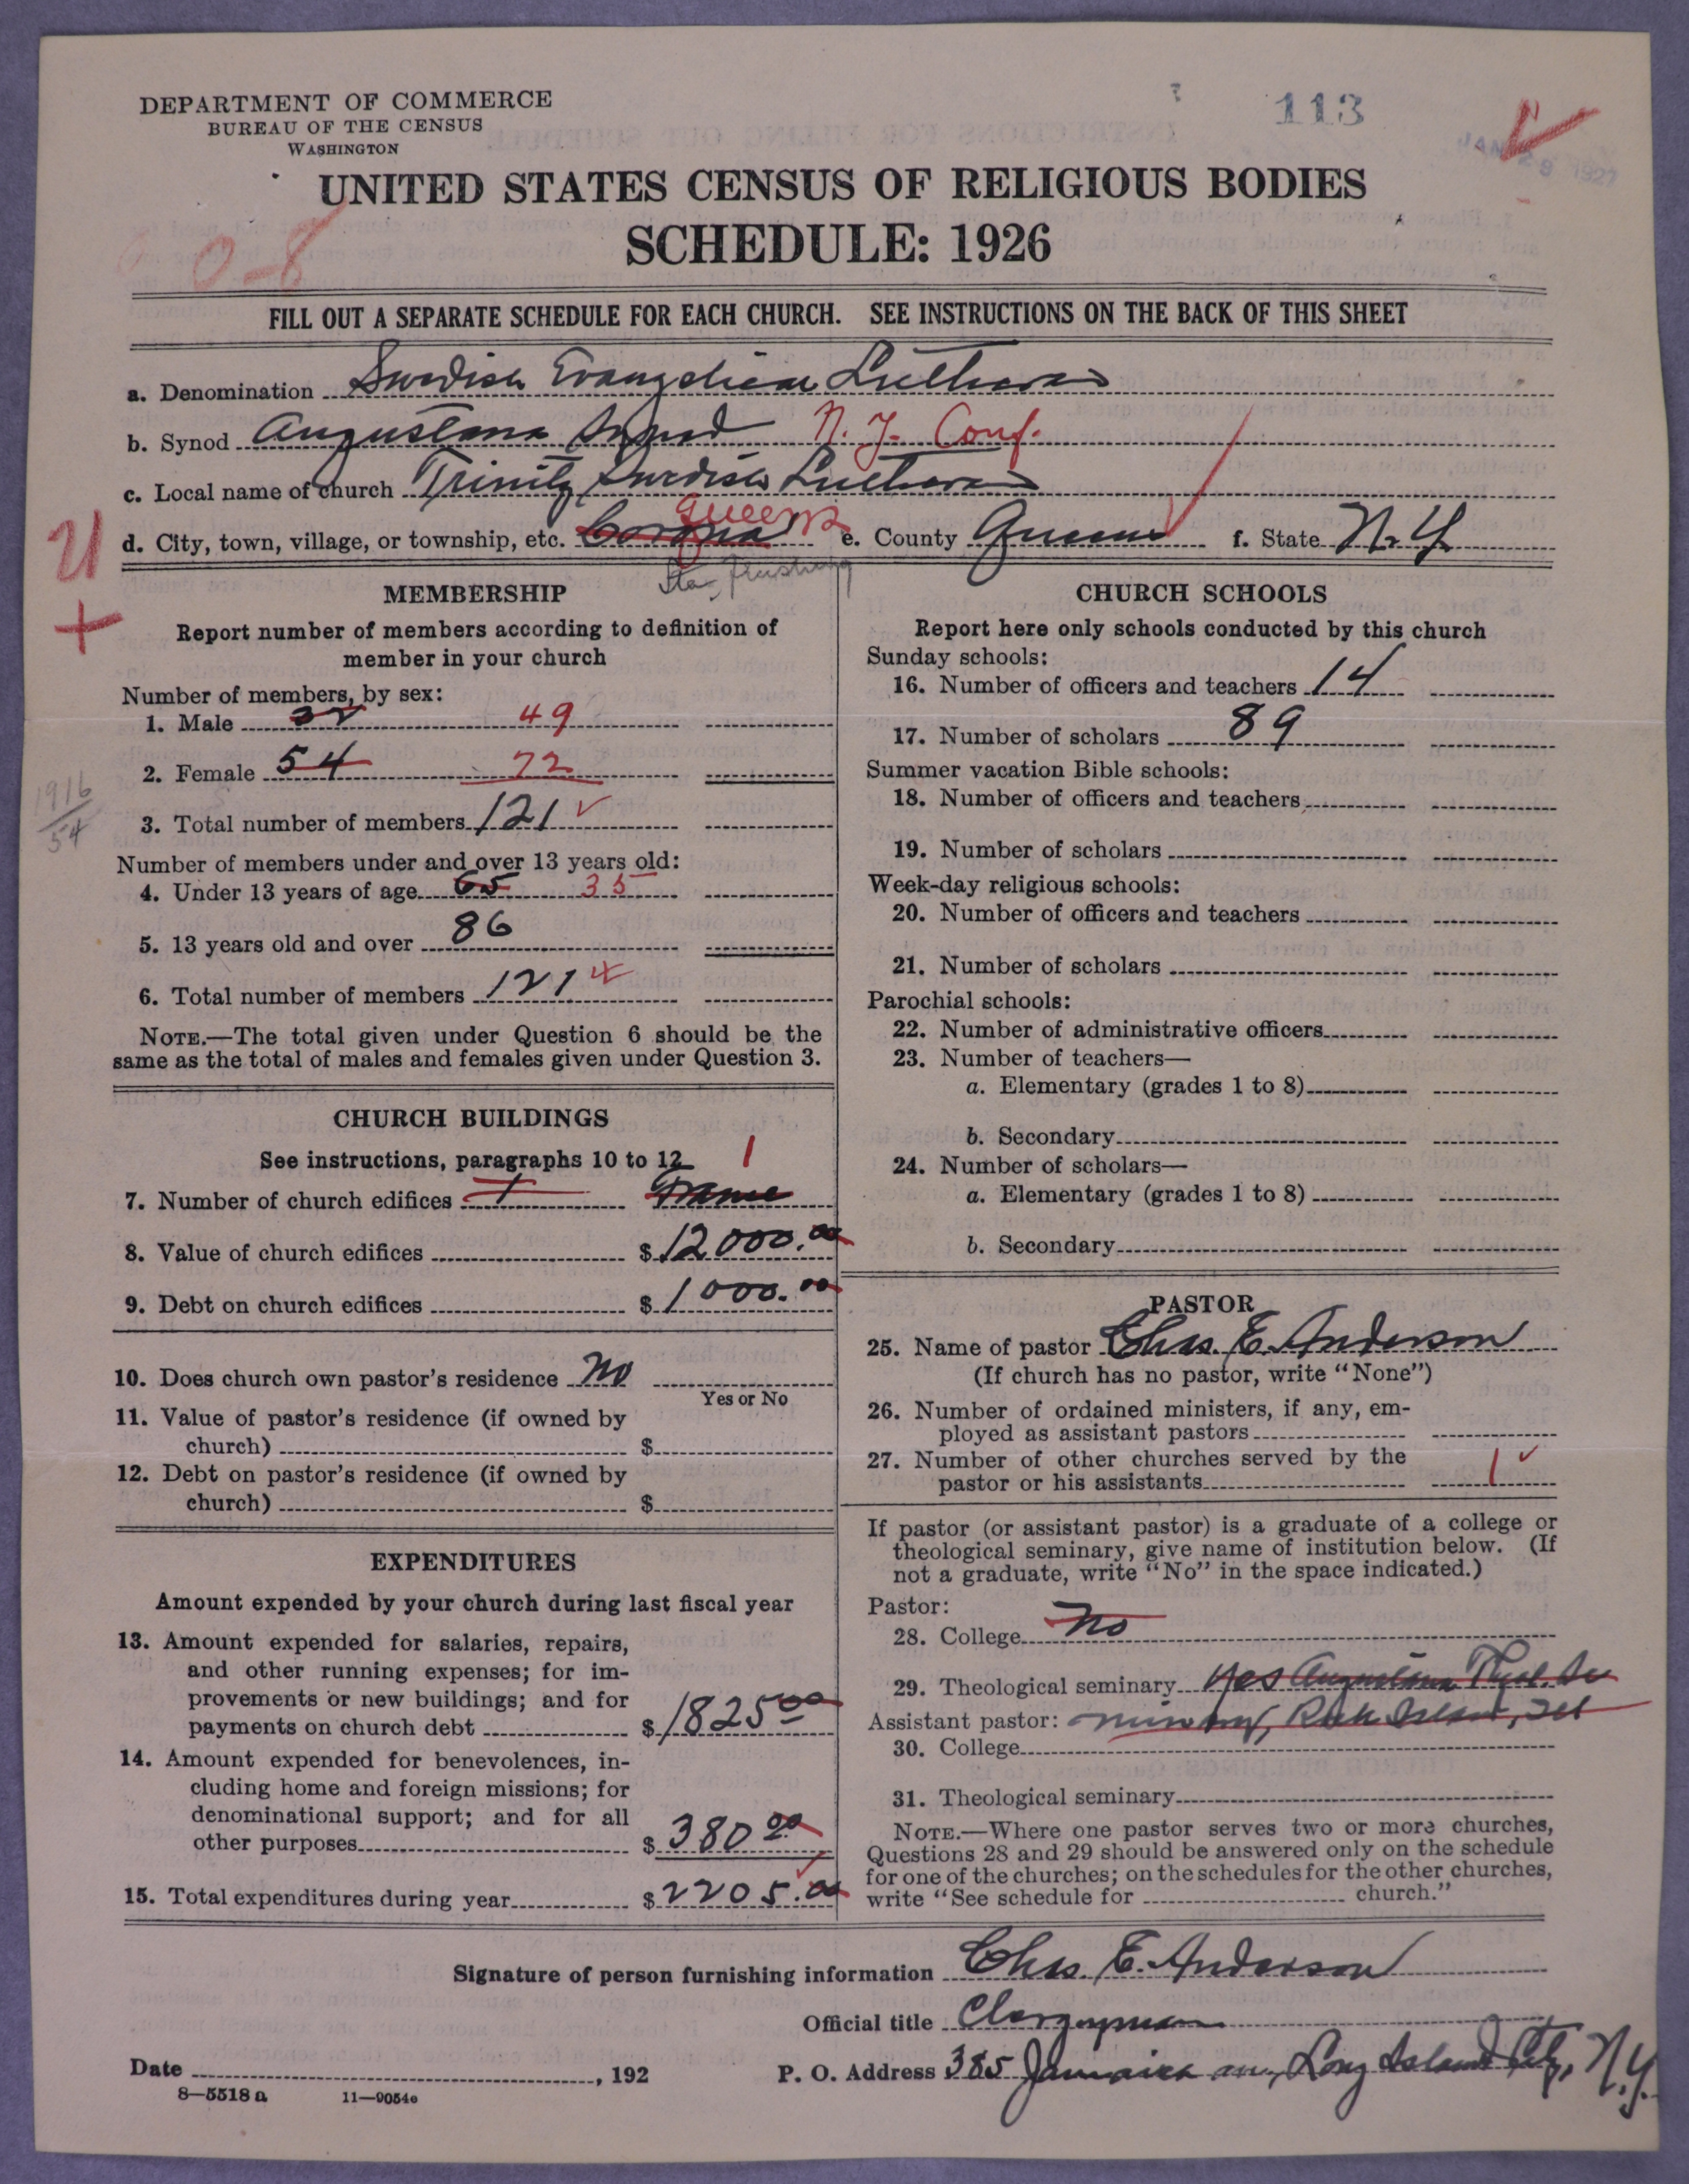 DEPARTMENT OF COMMERCE
BUREAU OF THE CENSUS
WASHINGTON
113
JAN 29 1927
UNITED STATES CENSUS OF RELIGIOUS BODIES
SCHEDULE: 1926
0-8
FILL OUT A SEPARATE SCHEDULE FOR EACH CHURCH. SEE INSTRUCTIONS ON THE BACK OF THIS SHEET
a. Denomination Swedish Evangelical Lutheran
b. Synod Augustana Synod N. Y. Conf.
c. Local name of church Trinity Swedish Lutheran
d. City, town, village, or township, etc. Corona Queens e. County Queens f. State N. Y.
Sta. Flushing
U
+
MEMBERSHIP
Report number of members according to definition of
member in your church
Number of members, by sex:
1. Male 32 49
2. Female 54 72
1916
54
3. Total number of members 121
Number of members under and over 13 years old:
4. Under 13 years of age 65 35
5. 13 years old and over 86
6. Total number of members 121
NOTE.—The total given under Question 6 should be the
same as the total of males and females given under Question 3.
CHURCH BUILDINGS
See instructions, paragraphs 10 to 12
1
7. Number of church edifices 1 Frame
8. Value of church edifices $ 12000.00
9. Debt on church edifices $ 1000.00
10. Does church own pastor's residence No
Yes or No
11. Value of pastor's residence (if owned by
church) $
12. Debt on pastor's residence (if owned by
church) $
EXPENDITURES
Amount expended by your church during last fiscal year
13. Amount expended for salaries, repairs,
and other running expenses; for im-
provements or new buildings; and for
payments on church debt $ 1825 00
14. Amount expended for benevolences, in-
cluding home and foreign missions; for
denominational support; and for all
other purposes $ 380 00
15. Total expenditures during year $ 2205.00
CHURCH SCHOOLS
Report here only schools conducted by this church
Sunday schools:
16. Number of officers and teachers 14
17. Number of scholars 89
Summer vacation Bible schools:
18. Number of officers and teachers
19. Number of scholars
Week-day religious schools:
20. Number of officers and teachers
21. Number of scholars
Parochial schools:
22. Number of administrative officers
23. Number of teachers—
a. Elementary (grades 1 to 8)
b. Secondary
24. Number of scholars—
a. Elementary (grades 1 to 8)
b. Secondary
PASTOR
25. Name of pastor Chas. E. Anderson
(If church has no pastor, write "None")
26. Number of ordained ministers, if any, em-
ployed as assistant pastors
27. Number of other churches served by the
pastor or his assistants 1
If pastor (or assistant pastor) is a graduate of a college or
theological seminary, give name of institution below. (If
not a graduate, write "No" in the space indicated.)
Pastor:
28. College No
29. Theological seminary Yes Augustana Theol. Se
Assistant pastor: minary, Rock Island, Ill
30. College
31. Theological seminary
NOTE.—Where one pastor serves two or more churches,
Questions 28 and 29 should be answered only on the schedule
for one of the churches; on the schedules for the other churches,
write "See schedule for church."
Signature of person furnishing information Chas. E. Anderson
Official title Clergyman
Date , 192
P. O. Address 385 Jamaica ave, Long Island City, N.Y.
8—5518 a 11—9054e